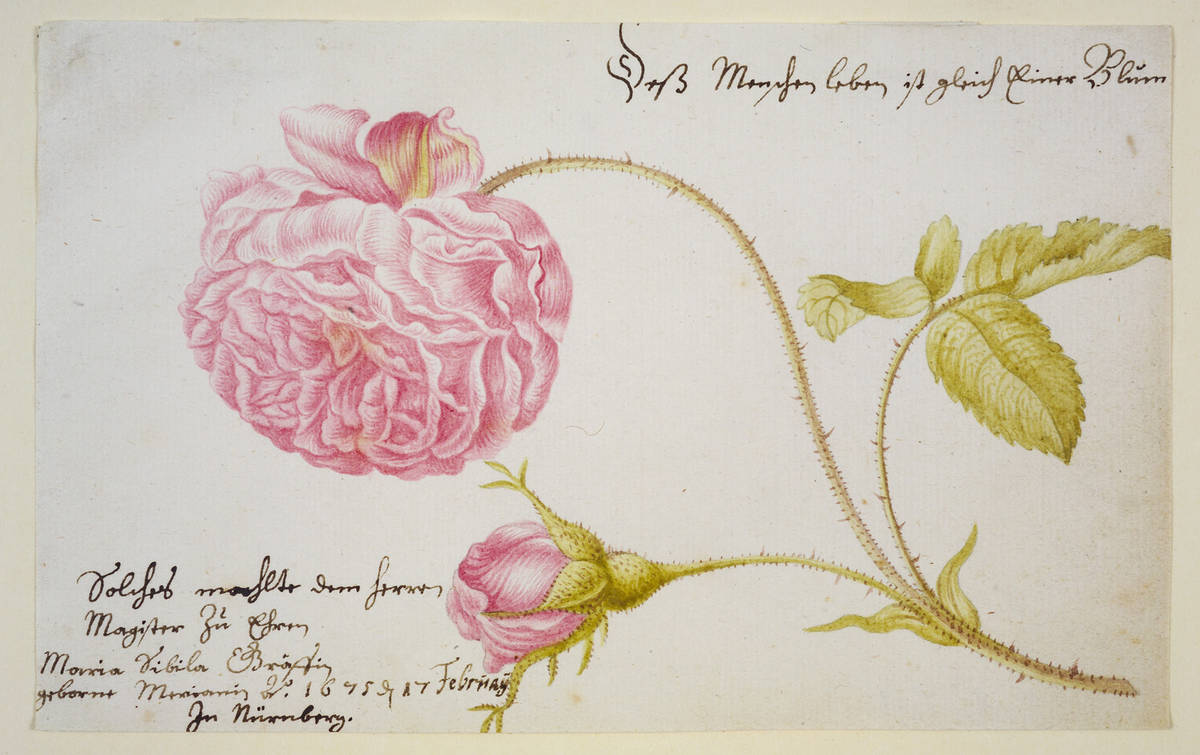 Deß Menschen leben ist gleich Einer Blum
Solches mahlte dem herren
Magister Zu Ehren
Maria Sibila Gräffin
geborne Merianin Ao. 1675 d 17 February
In Nürnberg.